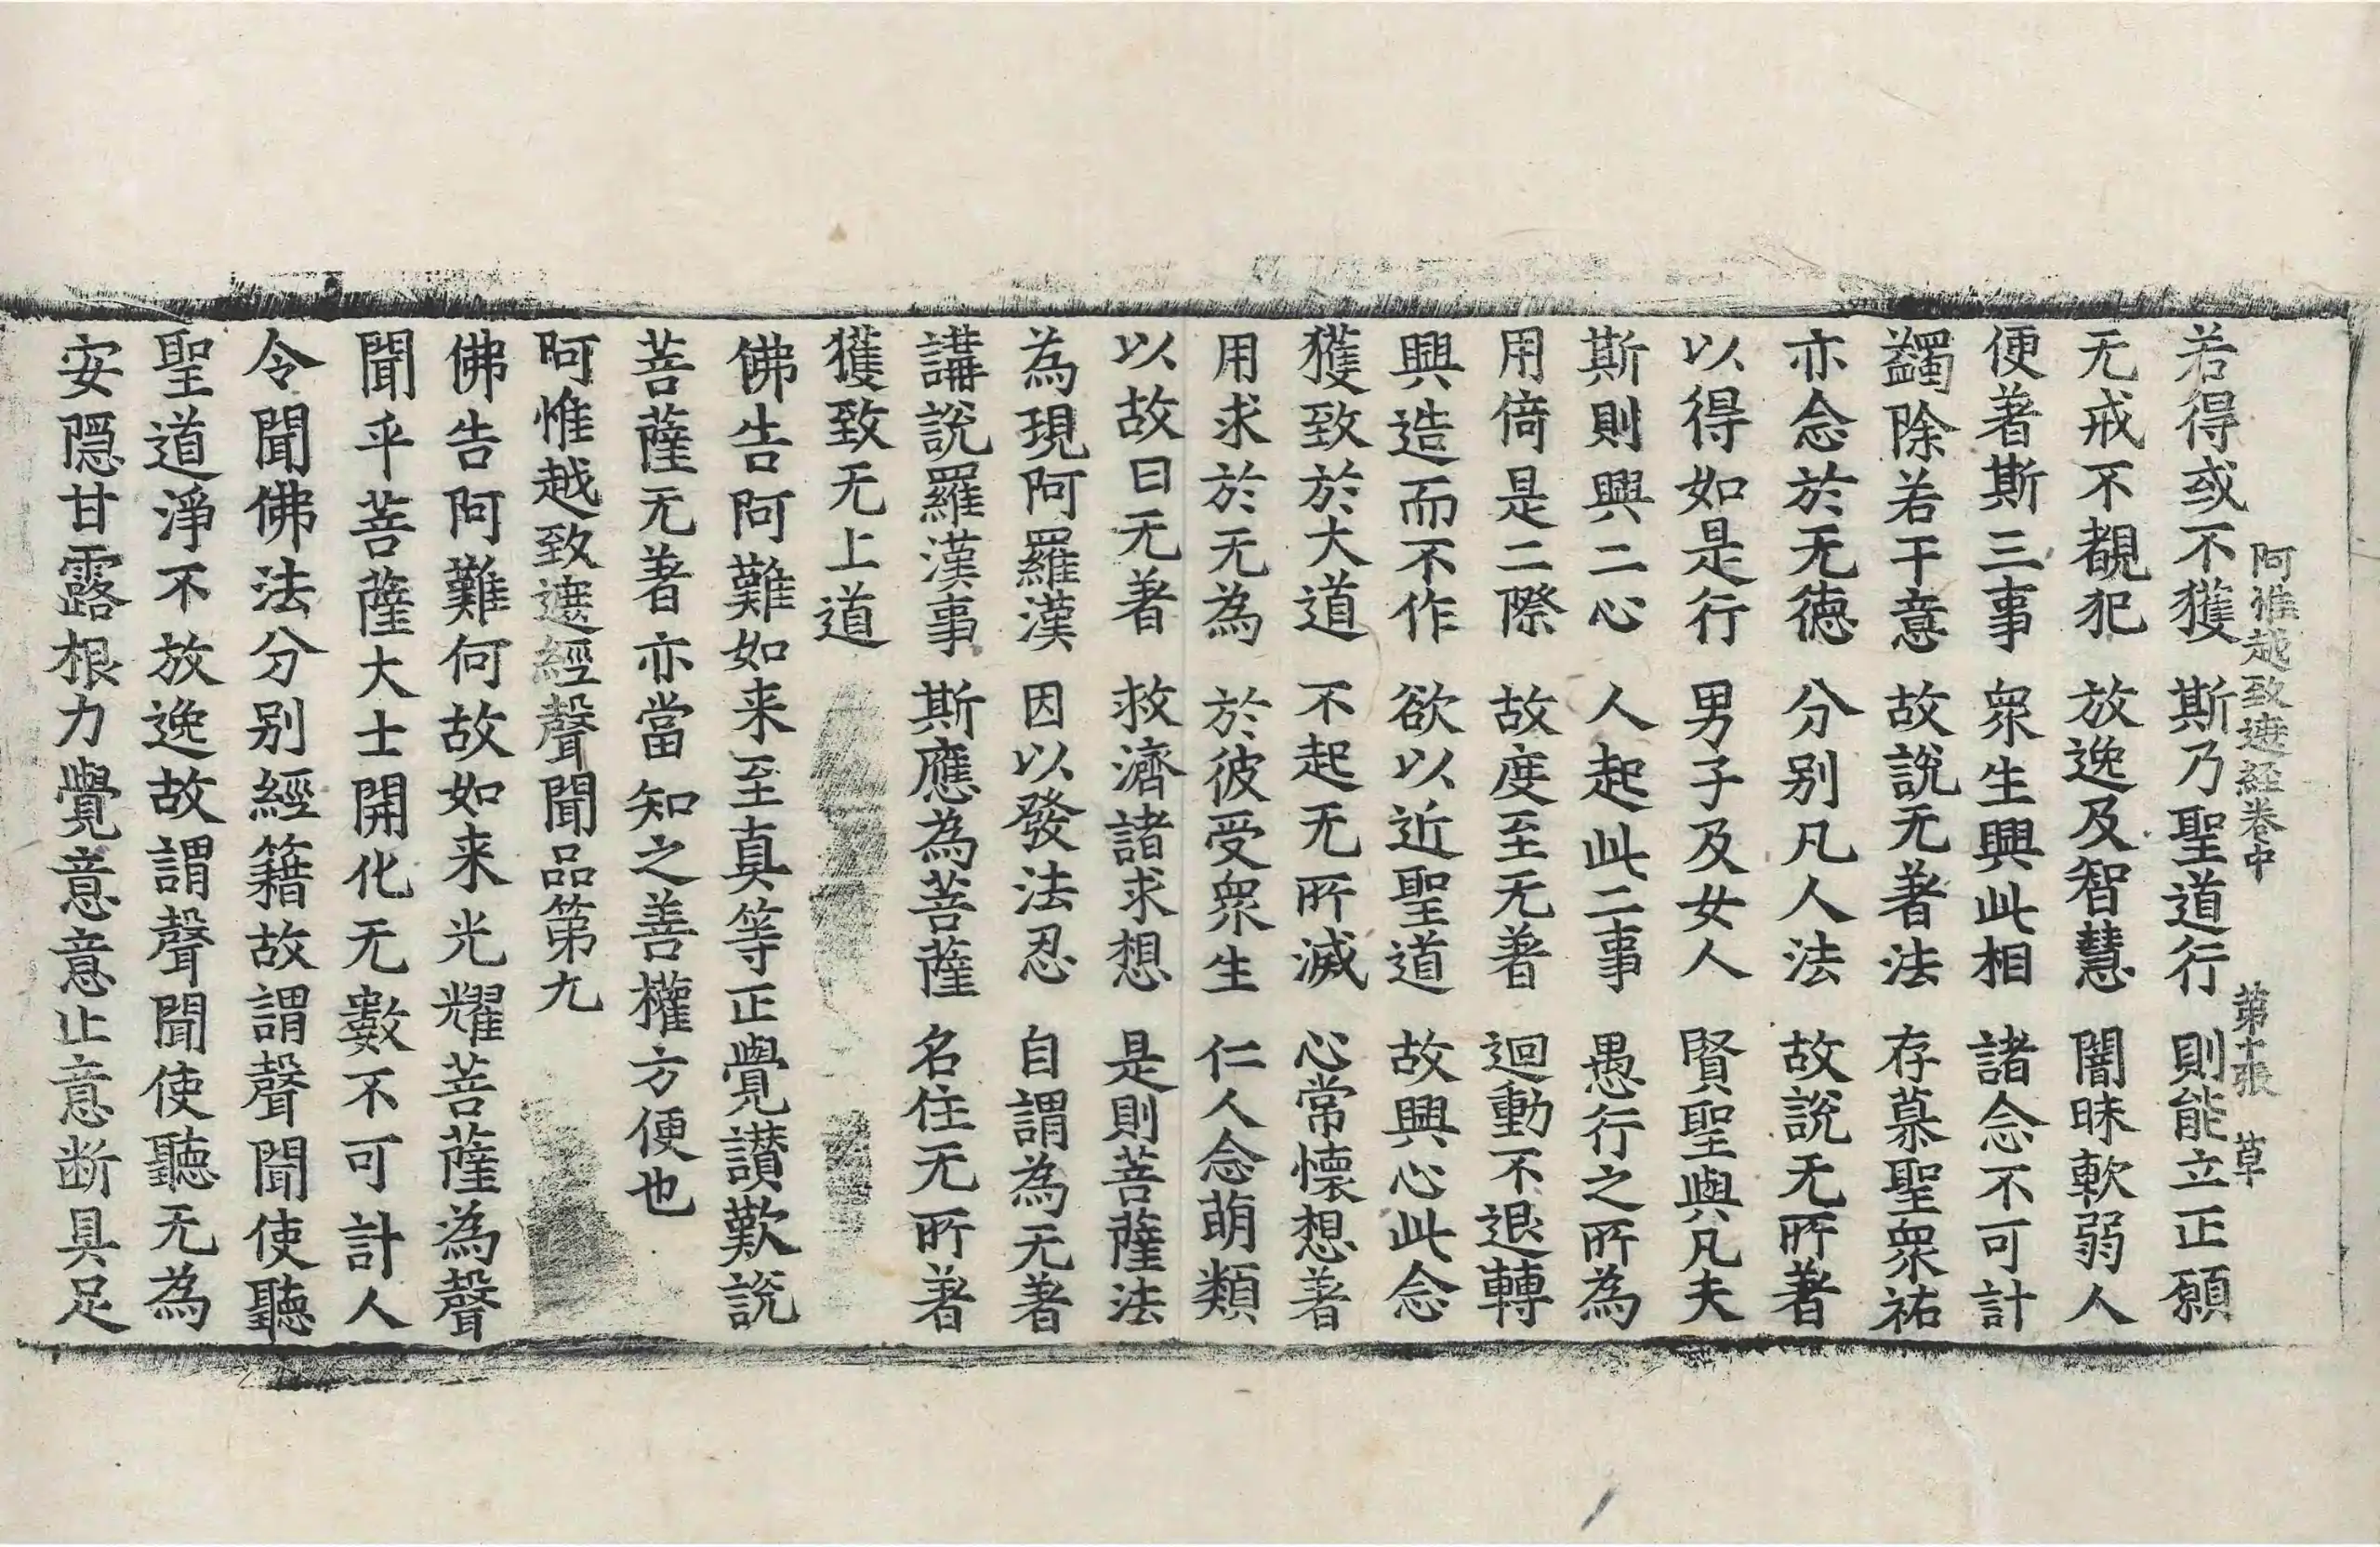 阿惟越致遮經卷中　第十張　草
若得或不獲　斯乃聖道行　則能立正願
无戒不覩犯　放逸及智慧　闇昧軟弱人
便著斯三事　衆生興此相　諸念不可計
蠲除若干意　故說无著法　存慕聖衆祐
亦念於无德　分别凡人法　故說无所著
以得如是行　男子及女人　賢聖與凡夫
斯則興二心　人起此二事　愚行之所為
用倚是二際　故度至无著　迴動不退轉
興造而不作　欲以近聖道　故興心此念
獲致於大道　不起无所滅　心常懷想著
用求於无為　於彼受衆生　仁人念萌類
以故曰无著　救濟諸求想　是則菩薩法
為現阿羅漢　因以發法忍　自謂為无著
講說羅漢事　斯應為菩薩　名住无所著
獲致无上道
佛告阿難如来至真等正覺讃歎說
菩薩无著亦當知之善權方便也
阿惟越致遮經聲聞品第九
佛告阿難何故如来光耀菩薩為聲
聞乎菩薩大士開化无數不可計人
令聞佛法分别經籍故謂聲聞使聽
聖道淨不放逸故謂聲聞使聽无為
安隱甘露根力覺意意止意断具足